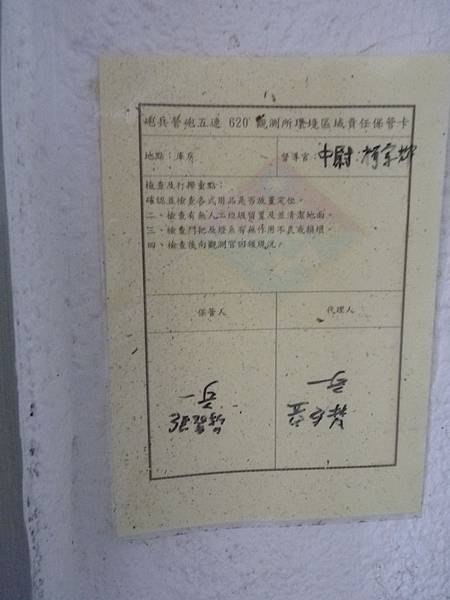 砲兵營砲五連 620 觀測所環境區域責任保管卡
地點：庫房
督導官：中尉
檢查及打掃重點：
確認並檢查各式用品是否放置定位。
二、檢查有無人工垃圾留置及並清潔地面。
三、檢查門把及燈系有無作用不良或損壞。
四、檢查後向觀測官回報現況。
保管人
代理人